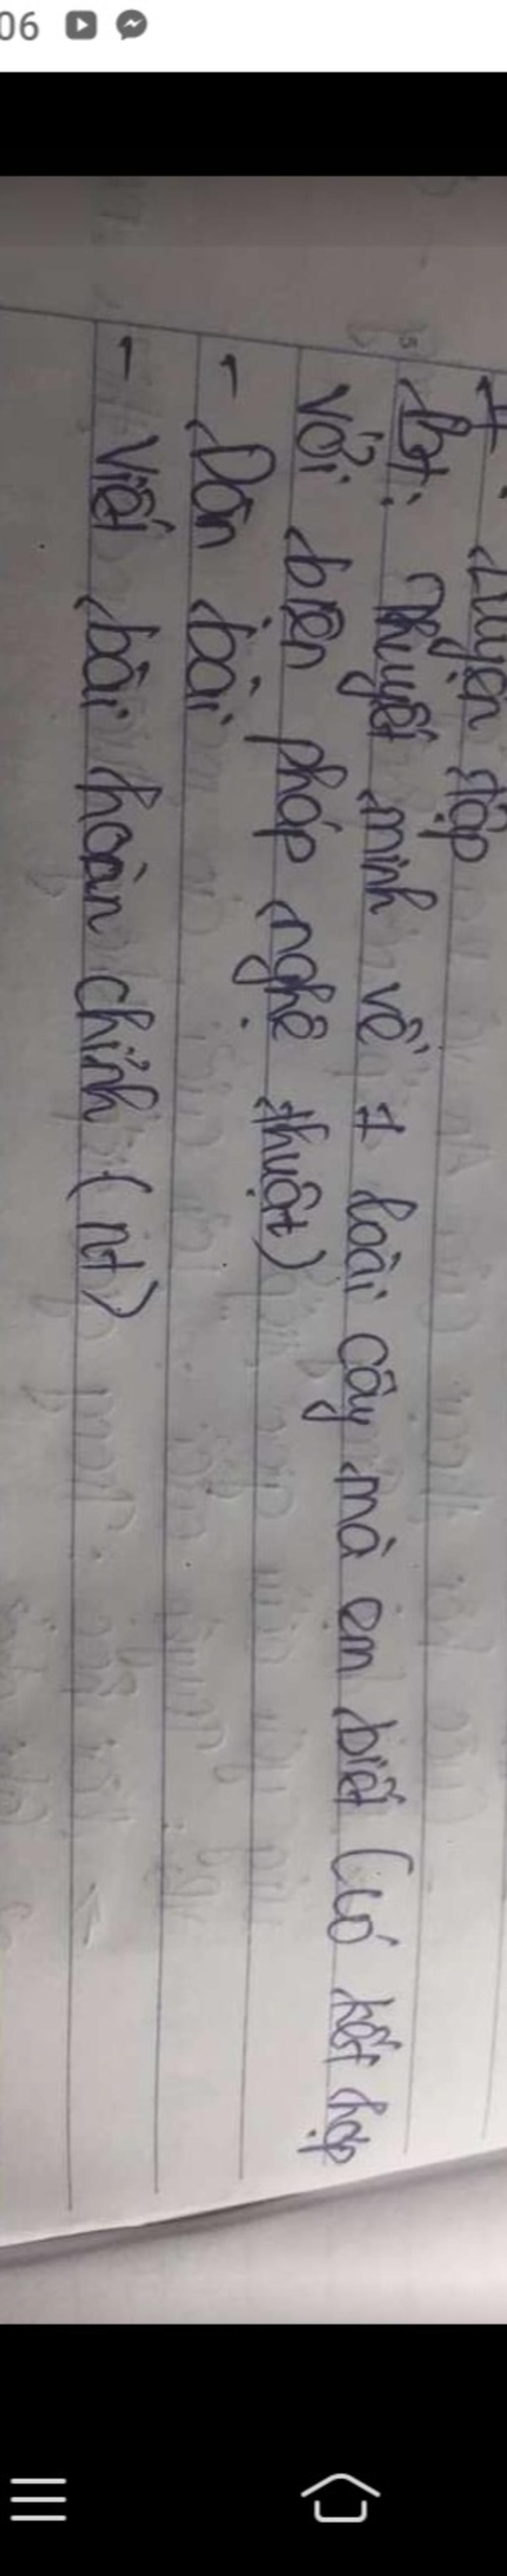 06
I. Luyện tập
Bt: Thuyết minh về 1 loài cây mà em biết (có kết hợp
với biện pháp nghệ thuật)
- Dàn bài
- Viết bài hoàn chỉnh (nt)